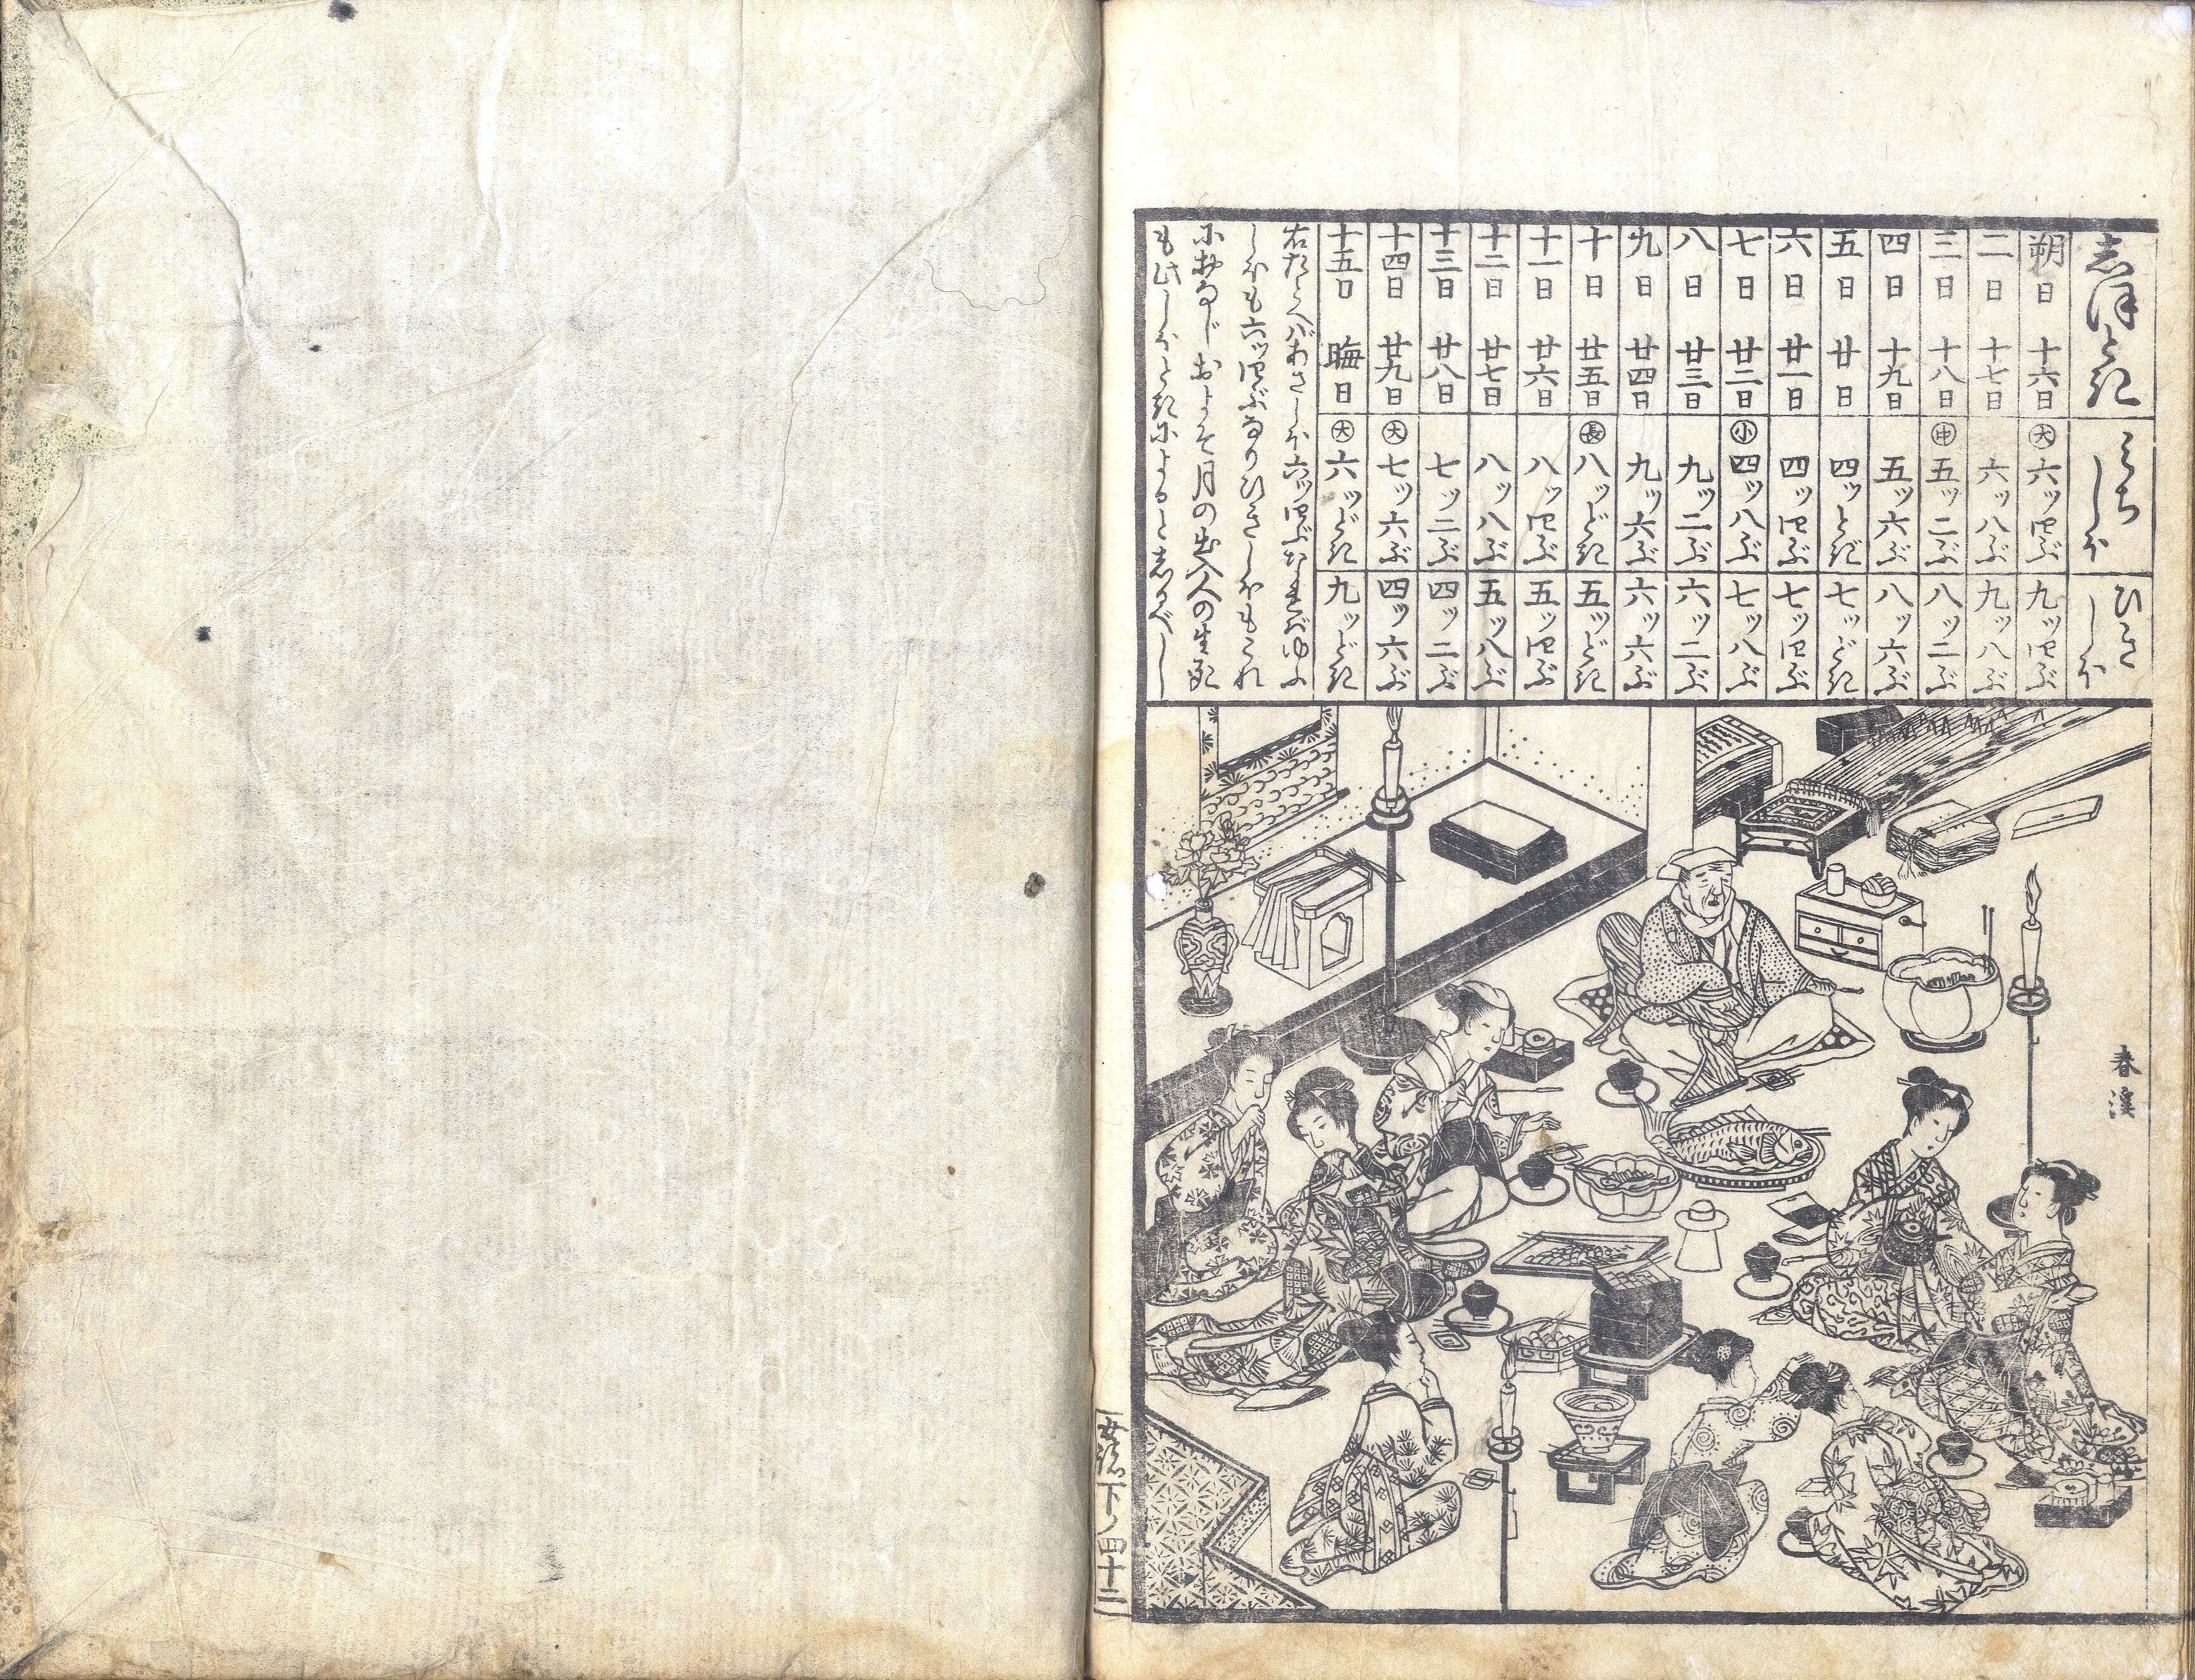 志ほとき
みちしほ
ひきしほ
朔日 十六日 ㊅六ツ四ぶ 九ツ四ぶ
二日 十七日 六ツ八ぶ 九ツ八ぶ
三日 十八日 ㊥五ツ二ぶ 八ツ二ぶ
四日 十九日 五ツ六ぶ 八ツ六ぶ
五日 廿日 四ツどき 七ツどき
六日 廿一日 四ツ四ぶ 七ツ四ぶ
七日 廿二日 小四ツ八ぶ 七ツ八ぶ
八日 廿三日 九ツ二ぶ 六ツ二ぶ
九日 廿四日 九ツ六ぶ 六ツ六ぶ
十日 廿五日 長八ツどき 五ツどき
十一日 廿六日 八ツ四ぶ 五ツ四ぶ
十二日 廿七日 八ツ八ぶ 五ツ八ぶ
十三日 廿八日 七ツ二ぶ 四ツ二ぶ
十四日 廿九日 大七ツ六ぶ 四ツ六ぶ
十五日 晦日 大六ツどき 九ツどき
右たとへばあさしほ六ツ四ぶなればゆふ
しほも六ツ四ぶなりひきしほもこれ
に おなじおよそ月の出入人の生死
も此しほときによると志るべし
春渓
女諸下ノ四十二